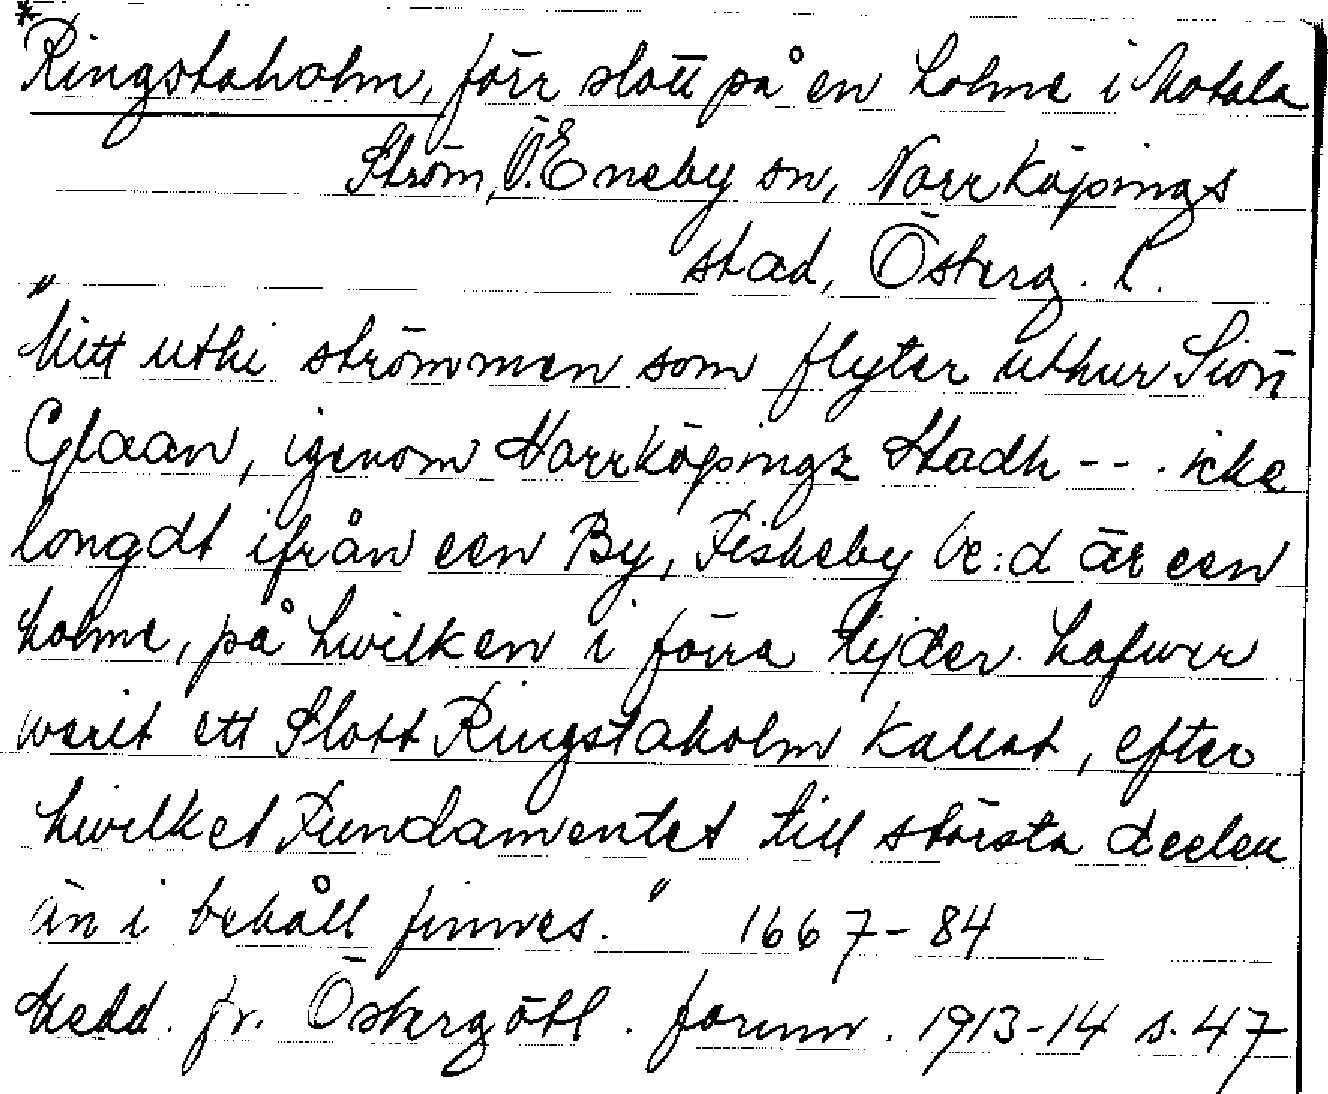 *Ringstaholm, förr slott på en holme i Motala
Ström, Ö. Eneby sn, Norrköpings
stad, Österg. l.
"Mitt uthi strömmen som flyter uthur Siön
Glaan, igenom Norrköpingz Stadh - - . icke
longdt ifrån een By, Fiskeby be:d är een
holme, på hwilken i förra tijder hafwer
warit ett Slott Ringstaholm kallat, efter
hwilket Fundamentet till största deelen
än i behåll finnes." 1667-84
Medd. fr. Östergötl. fornm. 1913-14 s. 47